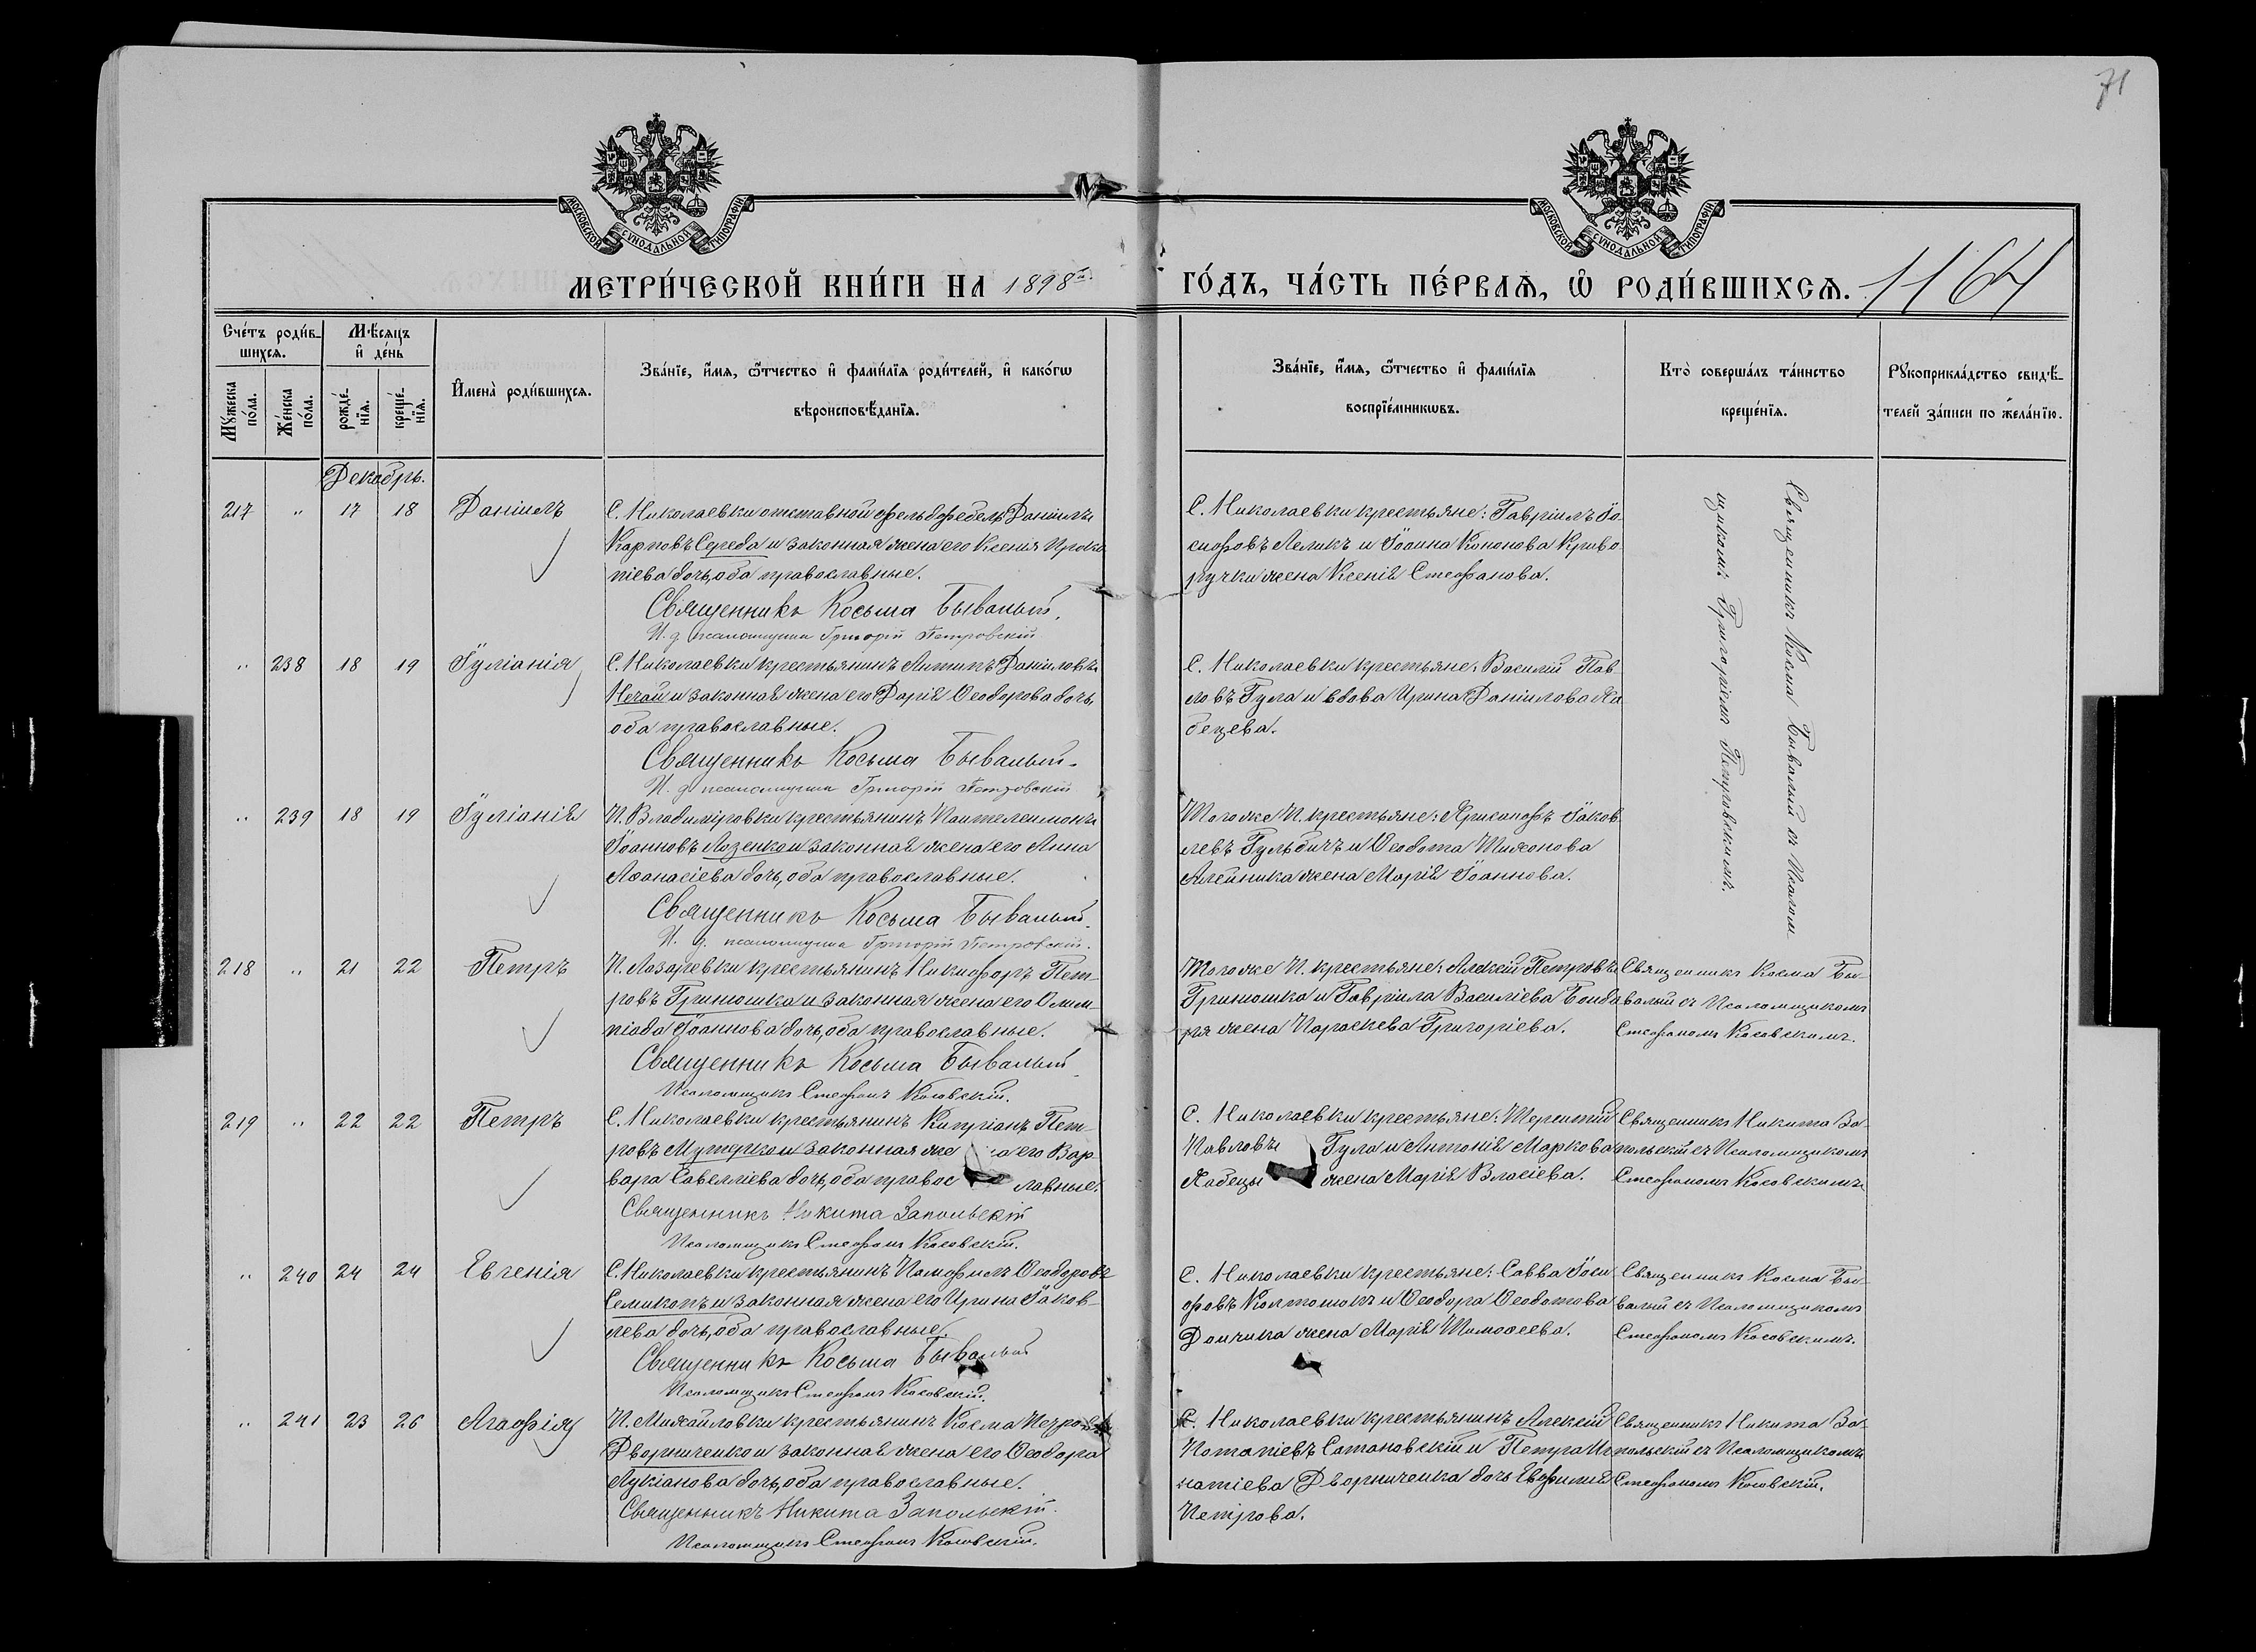 71
МОСКОВСКОЙ СУНОДАЛЬНОЙ ТИПОГРАФІИ
МОСКОВСКОЙ СУНОДАЛЬНОЙ ТИПОГРАФІИ
МЕТРИ́ЧЕСКОЙ КНИ́ГИ НА 1898й
ГО́ДЪ, ЧА́СТЬ ПЕ́РВАѦ, Ѡ РОДИ́ВШИХСѦ. 1164
Сче́тъ роди́в-
шихсѧ.
Мꙋ́жеска по́ла.
Же́нска по́ла.
Мѣ́сѧцъ и де́нь
рожде́-нїѧ.
креще́-нїѧ.
И҆мена̀ роди́вшихсѧ.
Зва́нїе, и҆́мѧ, ѻ҆́тчество и҆ фами́лїѧ роди́телей, и҆ како́гѡ
вѣроисповѣ́данїѧ.
Зва́нїе, и҆́мѧ, ѻ҆́тчество и҆ фами́лїѧ
воспрїе́мникѡвъ.
Кто̀ соверша́лъ та́инство
креще́нїѧ.
Рꙋкоприкла́дство свидѣ́-
телей за́писи по жела́нїю.
Декабрь.
217 " 17 18 Даніилъ
С. Николаевки отставной фельдфебель Даніилъ
Карповъ Середа и законная жена его Ксенія Проко
піева дочь, оба православные.
Священникъ Косьма Бывалый.
И. д. псаломщика Григорій Петровскій
С. Николаевки крестьяне: Гавріилъ Іо
сифовъ Леликъ и Іоанна Кононова Криво
ручки жена Ксенія Стефанова.
Священникъ Косма Бывалый съ Псалом
щикомъ Григоріемъ Петровскимъ.
" 238 18 19 Іуліанія
С. Николаевки крестьянинъ Антипъ Даниловъ
Нечай и законная жена его Дарія Ѳеодорова дочь,
оба православные.
Священникъ Косьма Бывалый.
И. д. псаломщика Григорій Петровскій
С. Николаевки крестьяне: Василій Пав
ловъ Гула и вдова Ирина Даніилова
" 239 18 19 Іуліанія
П. Владиміровки крестьянинъ Пантелеимонъ
Іоанновъ Лозенко и законная жена его Анна
Аѳанасіева дочь, оба православные.
Священникъ Косьма Бывалый.
И. д. псаломщика Григорій Петровскій.
Того же П. крестьяне: Іаков
левъ и Ѳеодота Тихонова
Алейника жена Марія Іоаннова.
218 " 21 22 Петръ
П. Лазаревки крестьянинъ Никифоръ Пет-
ровъ Гринюшка и законная жена его Олим-
піада Іоаннова дочь, оба православные.
Священникъ Косьма Бывалый
Псаломщикъ Стефанъ Косовскій.
Того же П. крестьяне: Алексій Петровъ
Гринюшка и Гавріила Василіева Бонда
ря жена Параскева Григоріева.
Священникъ Косма Бы-
валый съ Псаломщикомъ
Стефаномъ Косовскимъ.
219 " 22 22 Петръ
С. Николаевки крестьянинъ Кипріанъ Пет-
ровъ и законная же на его Вар
вара Савелліева дочь, оба правос лавные.
Священникъ Никита Запольскій
Псаломщикъ Стефанъ Косовскій.
С. Николаевки крестьяне: Терентій
Павловъ Гула и Антонія Маркова
жена Марія Власіева.
Священникъ Никита За-
польскій съ Псаломщикомъ
Стефаномъ Косовскимъ
" 240 24 24 Евгенія
С. Николаевки крестьянинъ Памфилъ Ѳеодоровъ
Семикопъ и законная жена его Ирина Іаков-
лева дочь, оба православные.
Священникъ Косьма Бывалый
Псаломщикъ Стефанъ Косовскій.
С. Николаевки крестьяне: Савва Іоси
фовъ и Ѳеодора Ѳеодотова
жена Марія Тимоѳеева.
Священникъ Косма Бы-
валый съ Псаломщикомъ
Стефаномъ Косовскимъ.
" 241 23 26 Агафія
П. Михайловки крестьянинъ Косма Петровъ
Дворниченко и законная жена его Ѳеодора
Лукіанова дочь, оба православные.
Священникъ Никита Запольскій.
Псаломщикъ Стефанъ Косовскій.
С. Николаевки крестьянинъ Алексій
Потапіевъ Сотановскій и Петра Иг
натіева Дворниченка дочь Евфимія
Петрова.
Священникъ Никита За-
польскій съ Псаломщикомъ
Стефаномъ Косовскій.